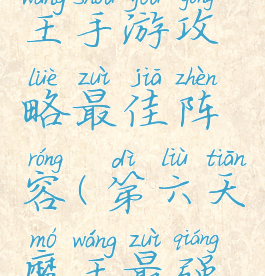 wáng shǒu yóu gōng
王手游攻
lüè zuì jiā zhèn
略最佳阵
róng dì liù tiān
容(第六天
mó wáng zuì qiáng
魔王最强